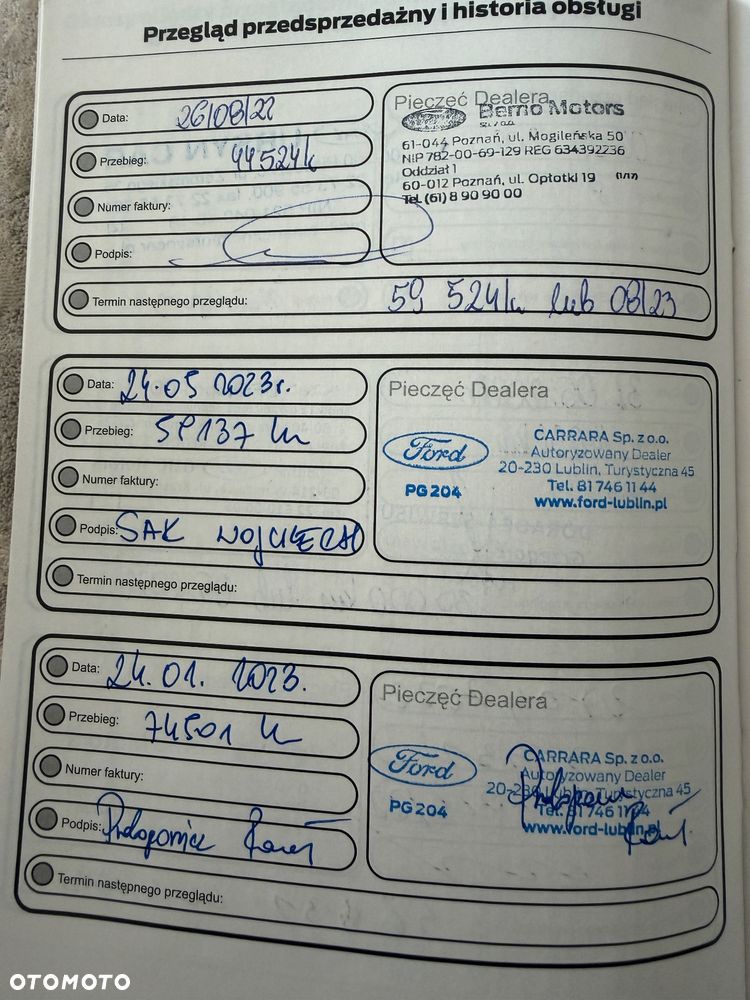 Przegląd przedsprzedażny i historia obsługi
Data: 26/08/22
Przebieg: 44524k
Numer faktury:
Podpis:
Pieczęć Dealera
Bemo Motors
Sp. z o.o.
61-044 Poznań, ul. Mogileńska 50
NIP 782-00-69-129 REG 634392236
Oddział 1
60-012 Poznań, ul. Opłotki 19
Tel. (61) 8 90 90 00
Termin następnego przeglądu: 59 524k lub 08/23
Data: 24.05 2023r.
Przebieg: 59137 km
Numer faktury:
Podpis: SAK WOJCIECH
Pieczęć Dealera
Ford
PG 204
CARRARA Sp. z o.o.
Autoryzowany Dealer
20-230 Lublin, Turystyczna 45
Tel. 81 746 11 44
www.ford-lublin.pl
Termin następnego przeglądu:
Data: 24.01. 2023.
Przebieg: 74501 km
Numer faktury:
Podpis:
Pieczęć Dealera
Ford
PG 204
CARRARA Sp. z o.o.
Autoryzowany Dealer
20-230 Lublin, Turystyczna 45
Tel. 81 746 11 44
www.ford-lublin.pl
Termin następnego przeglądu:
OTOMOTO